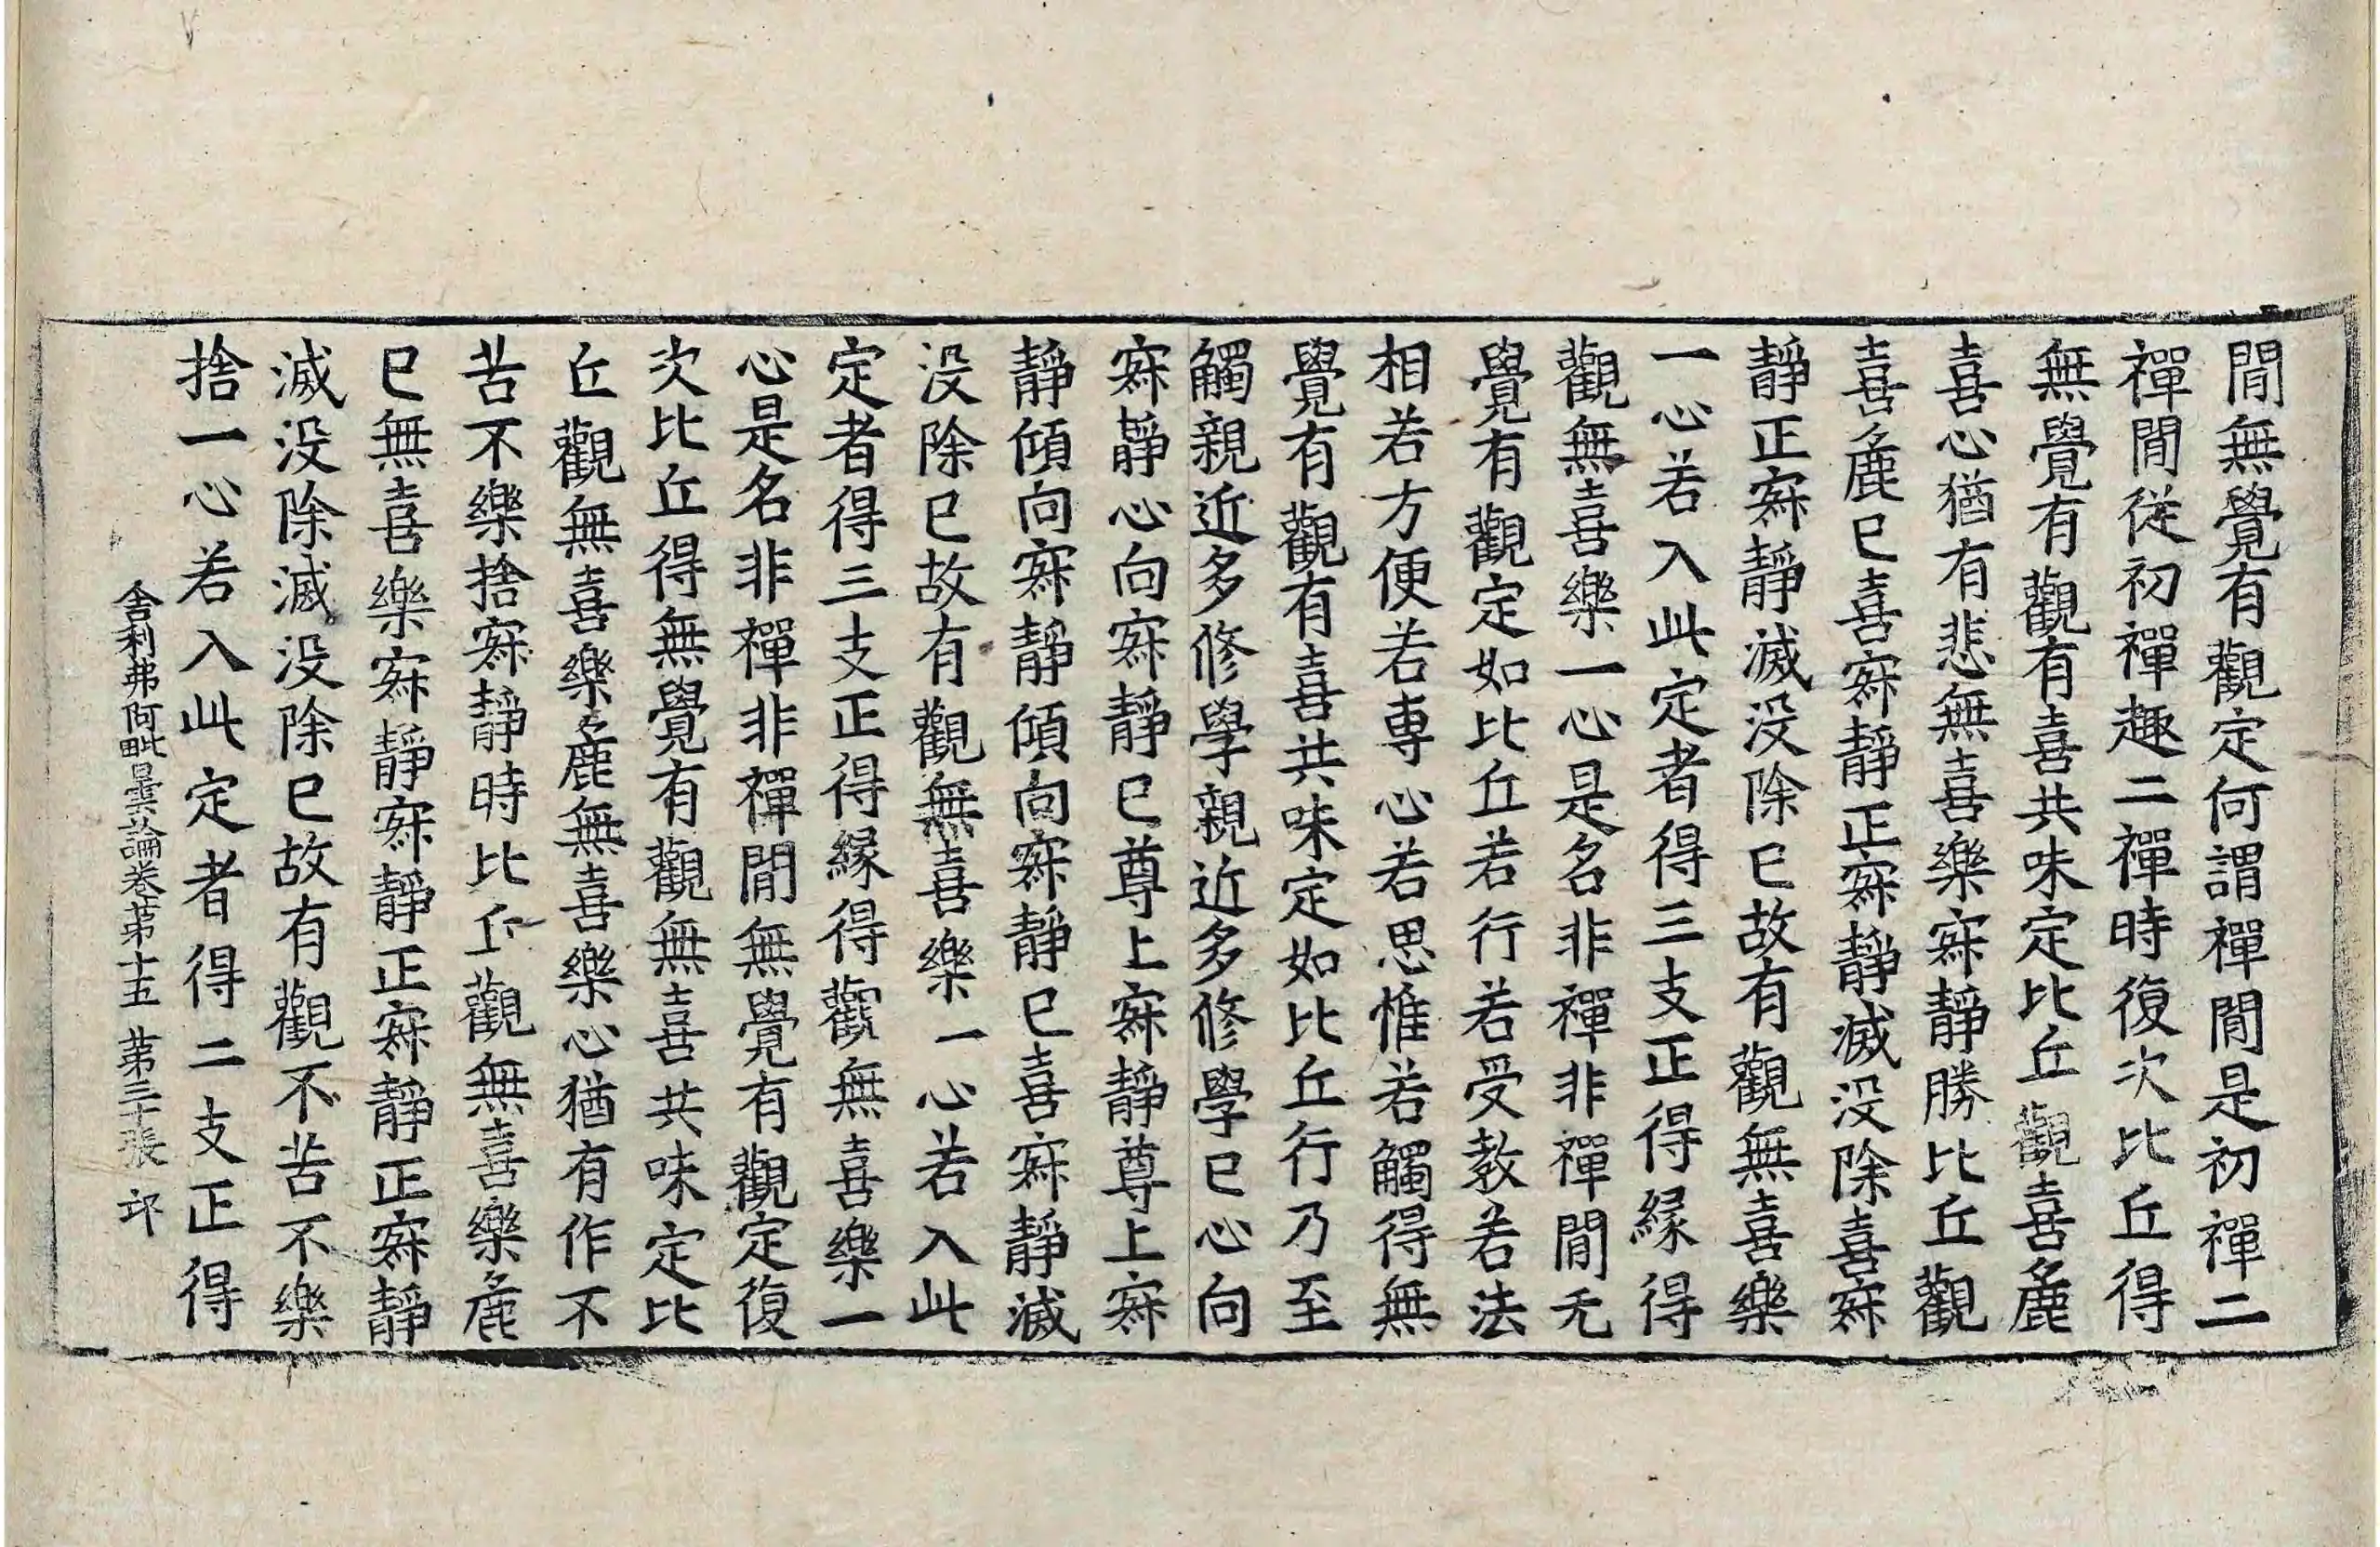 間無覺有觀定何謂禪間是初禪二
禪間從初禪趣二禪時復次比丘得
無覺有觀有喜共味定比丘觀喜麁
喜心猶有悲無喜樂寂靜勝比丘觀
喜麁已喜寂靜正寂靜滅没除喜寂
靜正寂靜滅没除已故有觀無喜樂
一心若入此定者得三支正得緣得
觀無喜樂一心是名非禪非禪間无
覺有觀定如比丘若行若受教若法
相若方便若專心若思惟若觸得無
覺有觀有喜共味定如比丘行乃至
觸親近多修學親近多修學已心向
寂靜心向寂靜已尊上寂靜尊上寂
靜傾向寂靜傾向寂靜已喜寂靜滅
没除已故有觀無喜樂一心若入此
定者得三支正得緣得觀無喜樂一
心是名非禪非禪間無覺有觀定復
次比丘得無覺有觀無喜共味定比
丘觀無喜樂麁無喜樂心猶有作不
苦不樂捨寂靜時比丘觀無喜樂麁
已無喜樂寂靜寂靜正寂靜正寂靜
滅没除滅没除已故有觀不苦不樂
捨一心若入此定者得二支正得
舍利弗阿毗曇論卷第十五 第三十張 邙